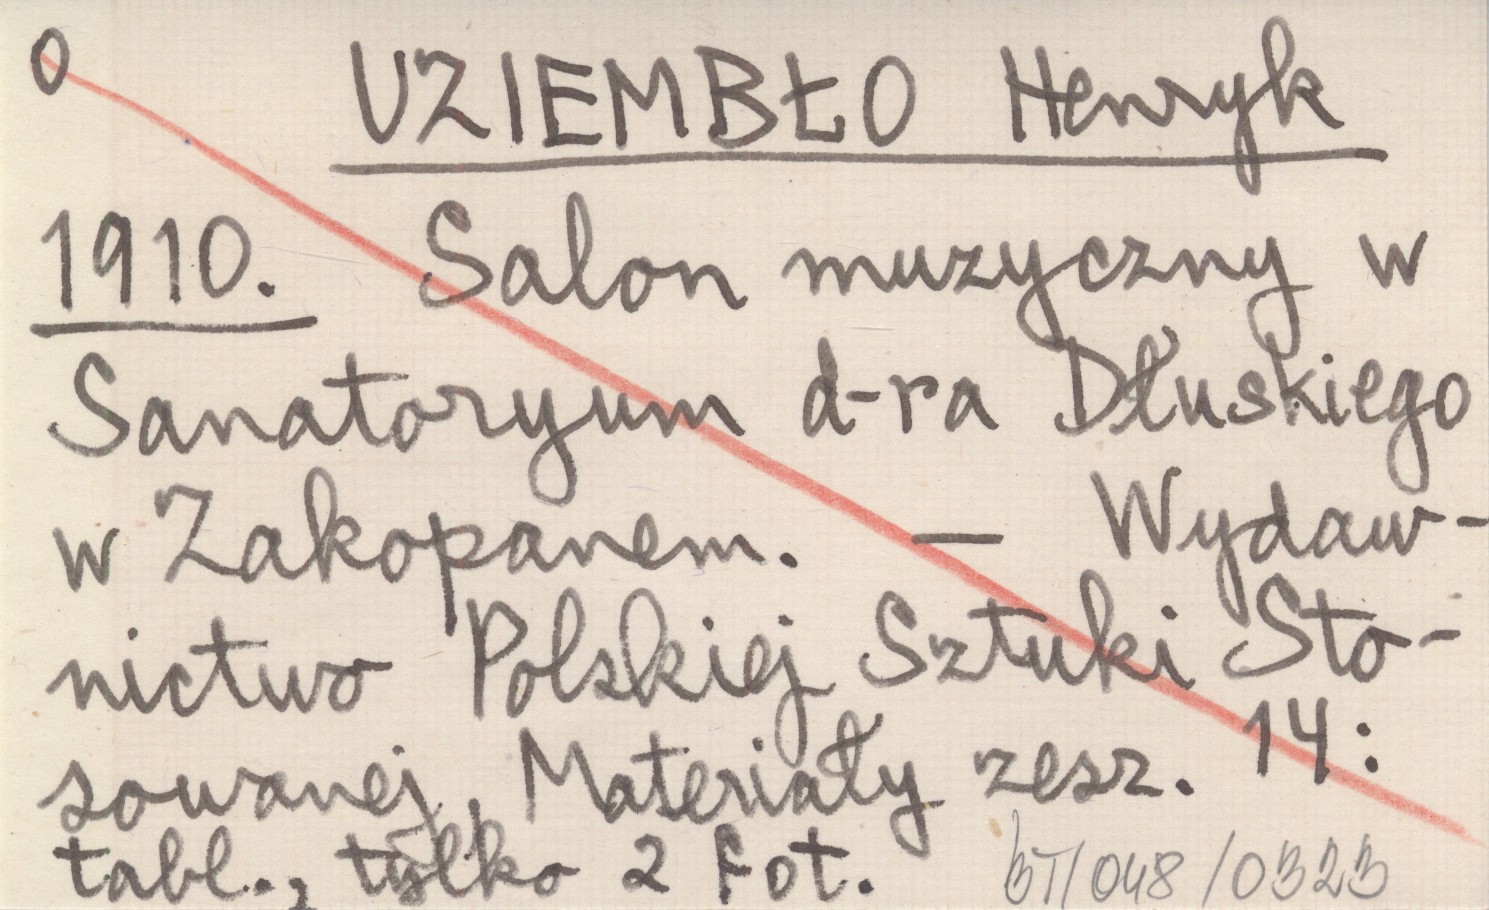 0 UZIEMBŁO Henryk
1910. Salon muzyczny w
Sanatoryum d-ra Dłuskiego
w Zakopanem. — Wydaw-
nictwo Polskiej Sztuki Sto-
sowanej, Materiały zesz. 14:
tabl., tylko 2 fot.
BT/048/0323